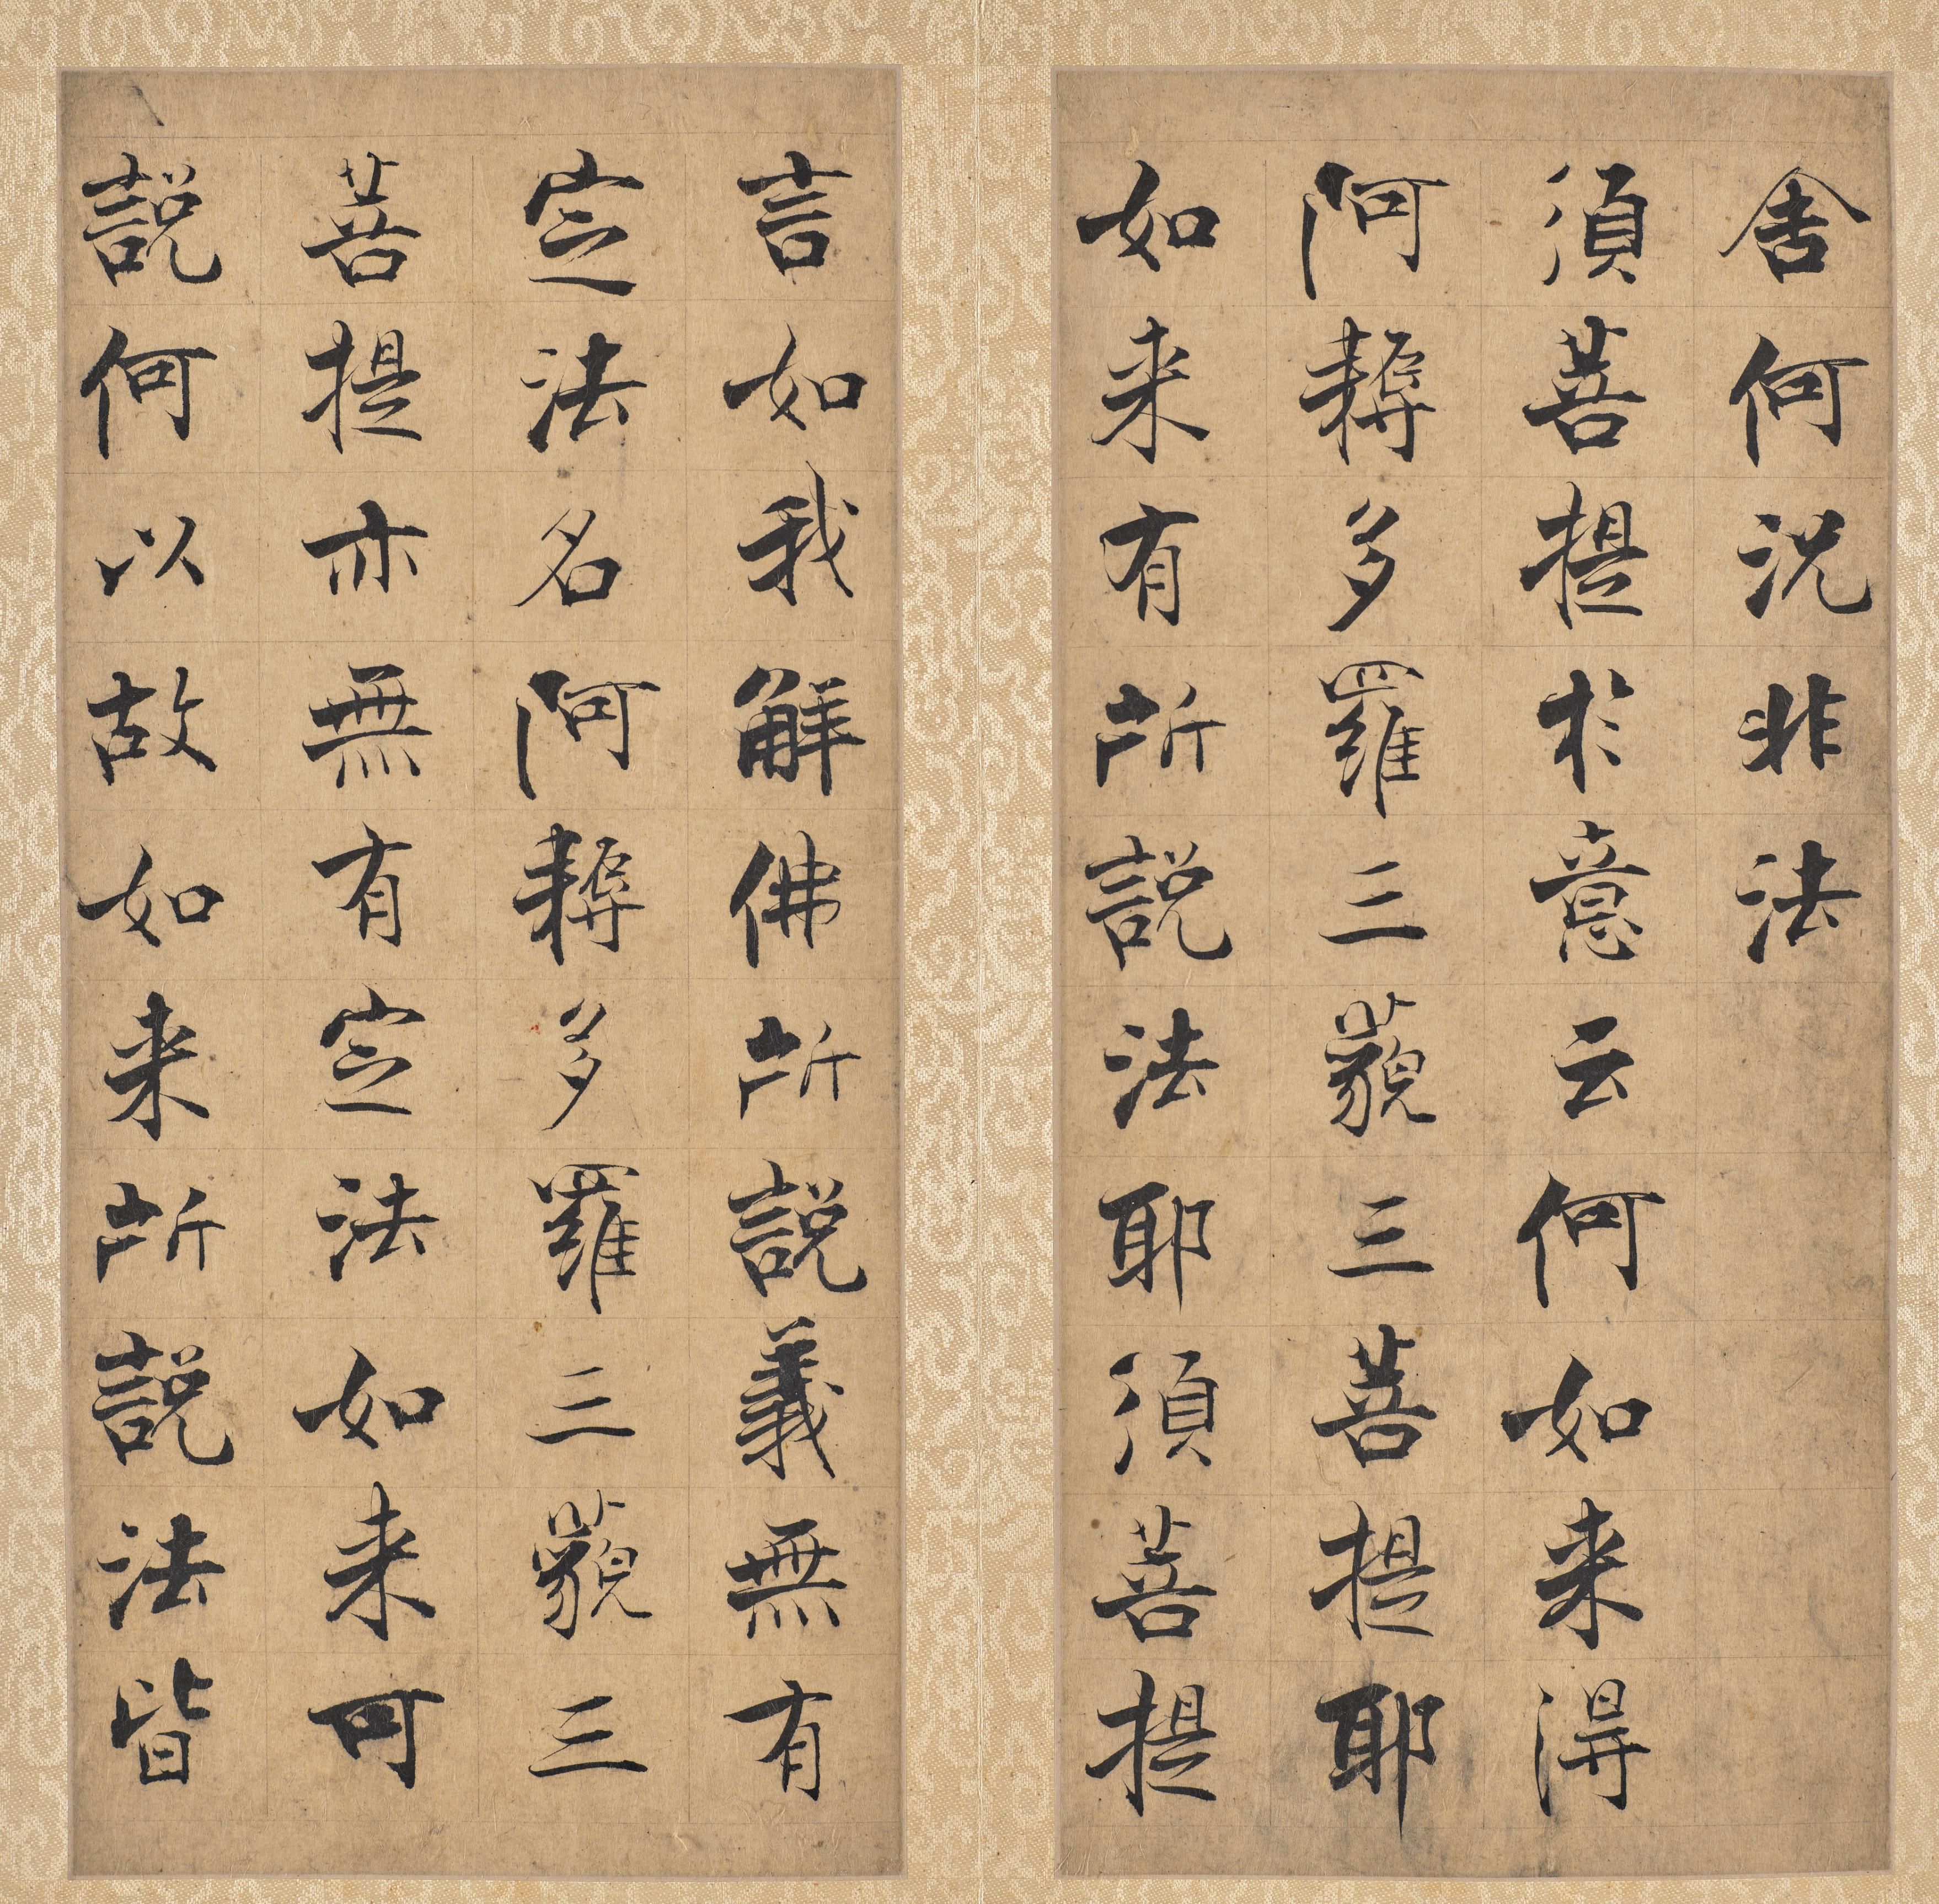 舍何況非法
須菩提扵意云何如来淂
阿耨多羅三藐三菩提耶
如来有所說法耶須菩提
言如我解佛所說義無有
定法名阿耨多羅三藐三
菩提亦無有定法如来可
說何以故如来所說法皆